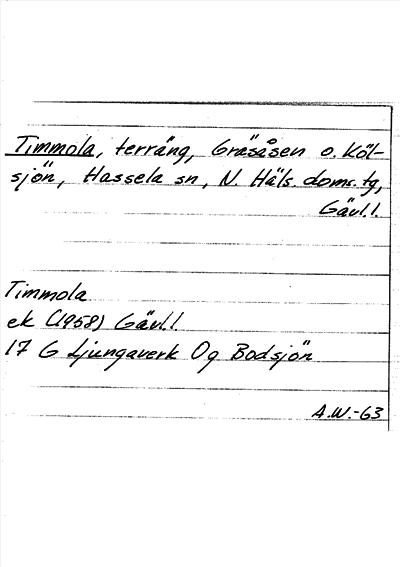 Timmola, terräng, Gräsåsen o. Köl-
sjön, Hassela sn, N. Häls. doms. tg,
Gävl.l.
Timmola
ek (1958) Gävl.l
17 G Ljungaverk Og Bodsjön
A.W.-63